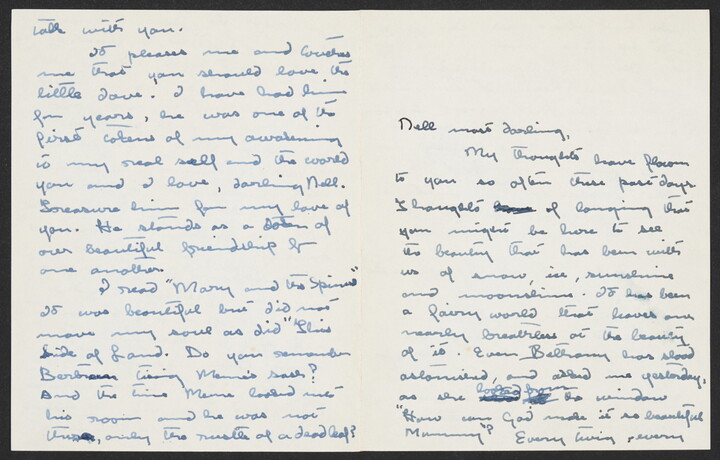 talk with you.
It pleases me and touches
me that you should love the
little dove. I have had him
for years, he was one of the
first tokens of my awakening
to my real self and the world
you and I love, darling Nell.
Treasure him for my love of
you. He stands as a token of
our beautiful friendship for
one another.
I read "Mary and the Spinner"
It was beautiful but did not
move my soul as did "This
Side of Land. Do you remember
Bertram
And the time Meme looked into
his room and he was not
there, only the rustle of a dead leaf?
Nell most darling,
My thoughts have flown
to you so often these past days.
Thoughts of longing that
you might be here to see
the beauty that has been with
us of snow, ice, sunshine
and moonshine. It has been
a fairy world that leaves one
nearly breathless at the beauty
of it. Even has stood
astonished, and asked me yesterday,
as she looked from the window
"How can God make it so beautiful
Mummy"? Every twig, every